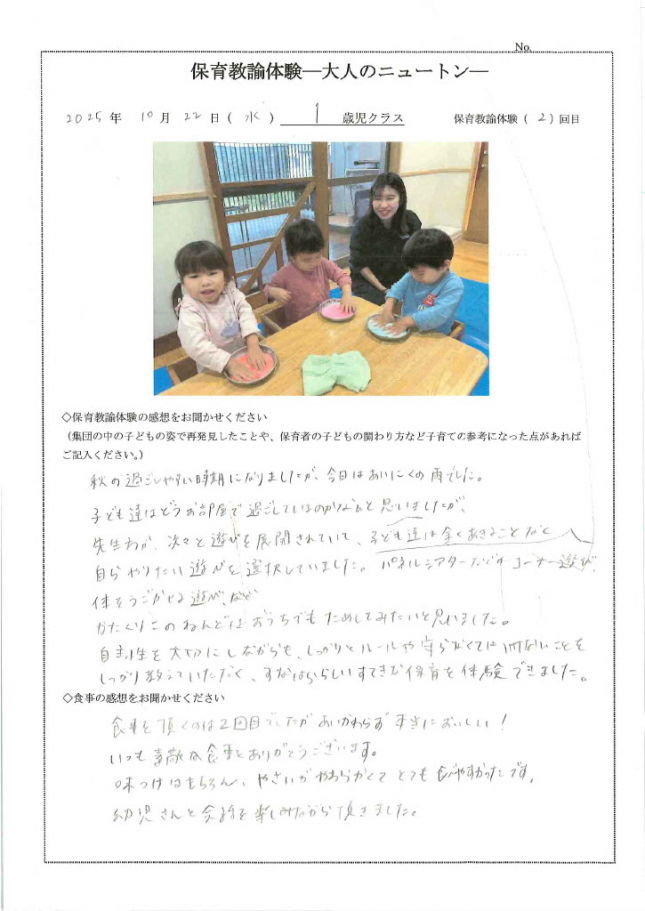 No.
保育教諭体験―大人のニュートン―
2025年 10月 22日(水) 1 歳児クラス 保育教諭体験(2)回目
◇保育教諭体験の感想をお聞かせください
(集団の中の子どもの姿で再発見したことや、保育者の子どもの関わり方など子育ての参考になった点があれば
ご記入ください。)
秋の過ごしやすい時期になりましたが、今日はあいにくの雨でした。
子ども達はどうお部屋で過ごしているのかなぁと思いましたが、
先生方が、次々と遊びを展開されていて、子ども達は全くあきることなく
自らやりたい遊びを選択していました。パネルシアターなどのコーナー遊び、
体をうごかせる遊び、など
かたくりこのねんどはおうちでもためしてみたいと思いました。
自主性を大切にしながらも、しっかりとルールや守らなくてはいけないことを
しっかり教えていただく、すばらしいすてきな保育を体験できました。
◇食事の感想をお聞かせください
食事を頂くのは2回目でしたがあいかわらず本当においしい!
いつも素敵な食事をありがとうございます。
味つけはもちろん、やさいがやわらかくてとても食べやすかったです。
幼児さんと会話を楽しみながら頂きました。